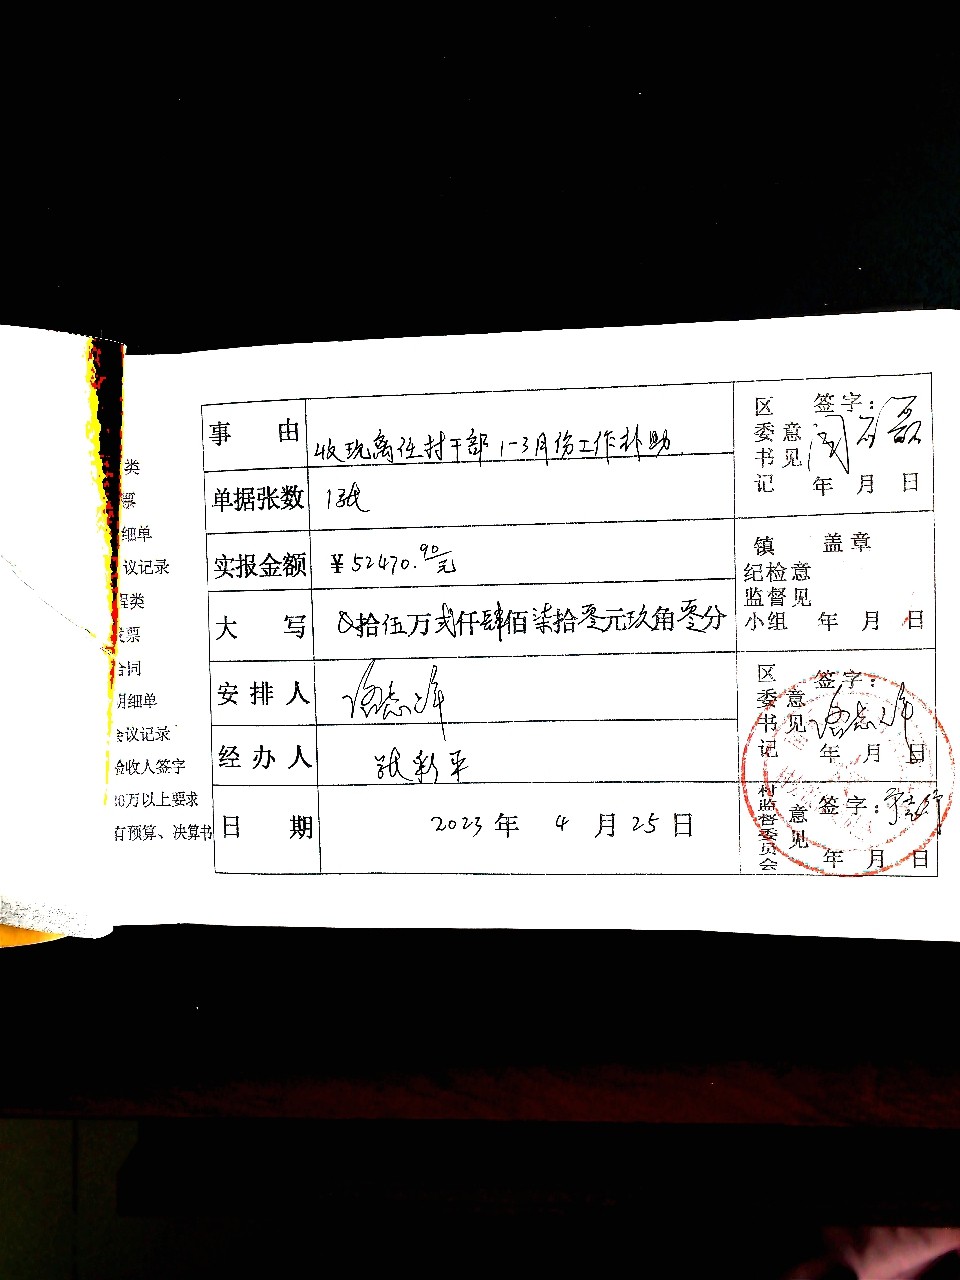 类
票
细单
议记录
程类
发票
合同
明细单
会议记录
验收人签字
30万以上要求
有预算、决算书
事 由 收现离任村干部1-3月份工作补助
单据张数 1张
实报金额 ¥52470.90元
大 写 拾伍万贰仟肆佰柒拾零元玖角零分
安排人
经办人 张彩平
日 期 2023年 4月25日
区委书记意见 签字:
年 月 日
镇纪检监督小组意见 盖章
年 月 日
区委书记意见 签字:
年 月 日
村监督委员会意见 签字:
年 月 日